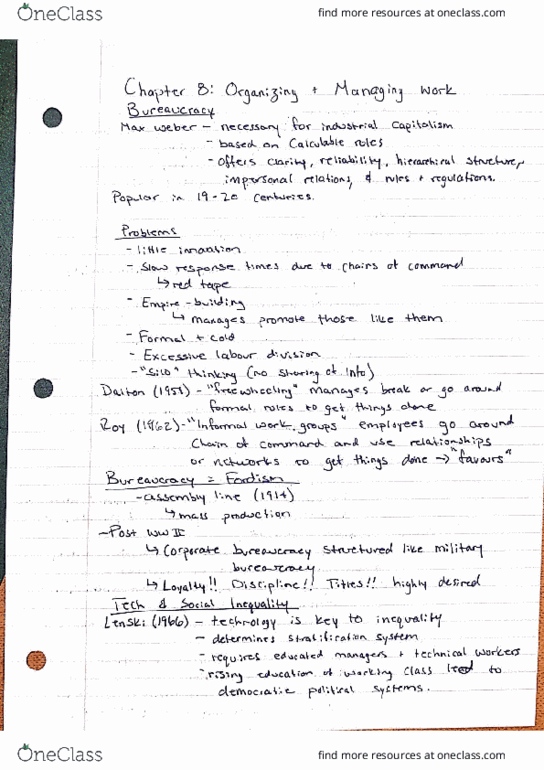 OneClass
find more resources at oneclass.com
Chapter 8: Organizing + Managing Work
Bureaucracy
Max Weber - necessary for industrial capitalism
- based on Calculable rules
- offers clarity, reliability, hierarchical structure,
impersonal relations, & rules + regulations.
Popular in 19-20 centuries.
Problems
- little innovation
- Slow response times due to chains of command
↳ red tape
- Empire-building
↳ manages promote those like them
- Formal + cold
- Excessive labour division
- "Silo" thinking (no sharing of info)
Dalton (1959) - "freewheeling" manages break or go around
formal rules to get things done
Roy (1962) - "Informal work groups" employees go around
Chain of command and use relationships
or networks to get things done → "favours"
Bureaucracy = Fordism
- assembly line (1914)
↳ mass production
- Post WW II
↳ Corporate bureaucracy structured like military
bureaucracy
↳ Loyalty!! Discipline!! Titles!! highly desired
Tech & Social Inequality
Lenski (1966) - technology is key to inequality
- determines stratification system
- requires educated managers + technical workers
- rising education of working class lead to
democratic political systems.
OneClass
find more resources at oneclass.com